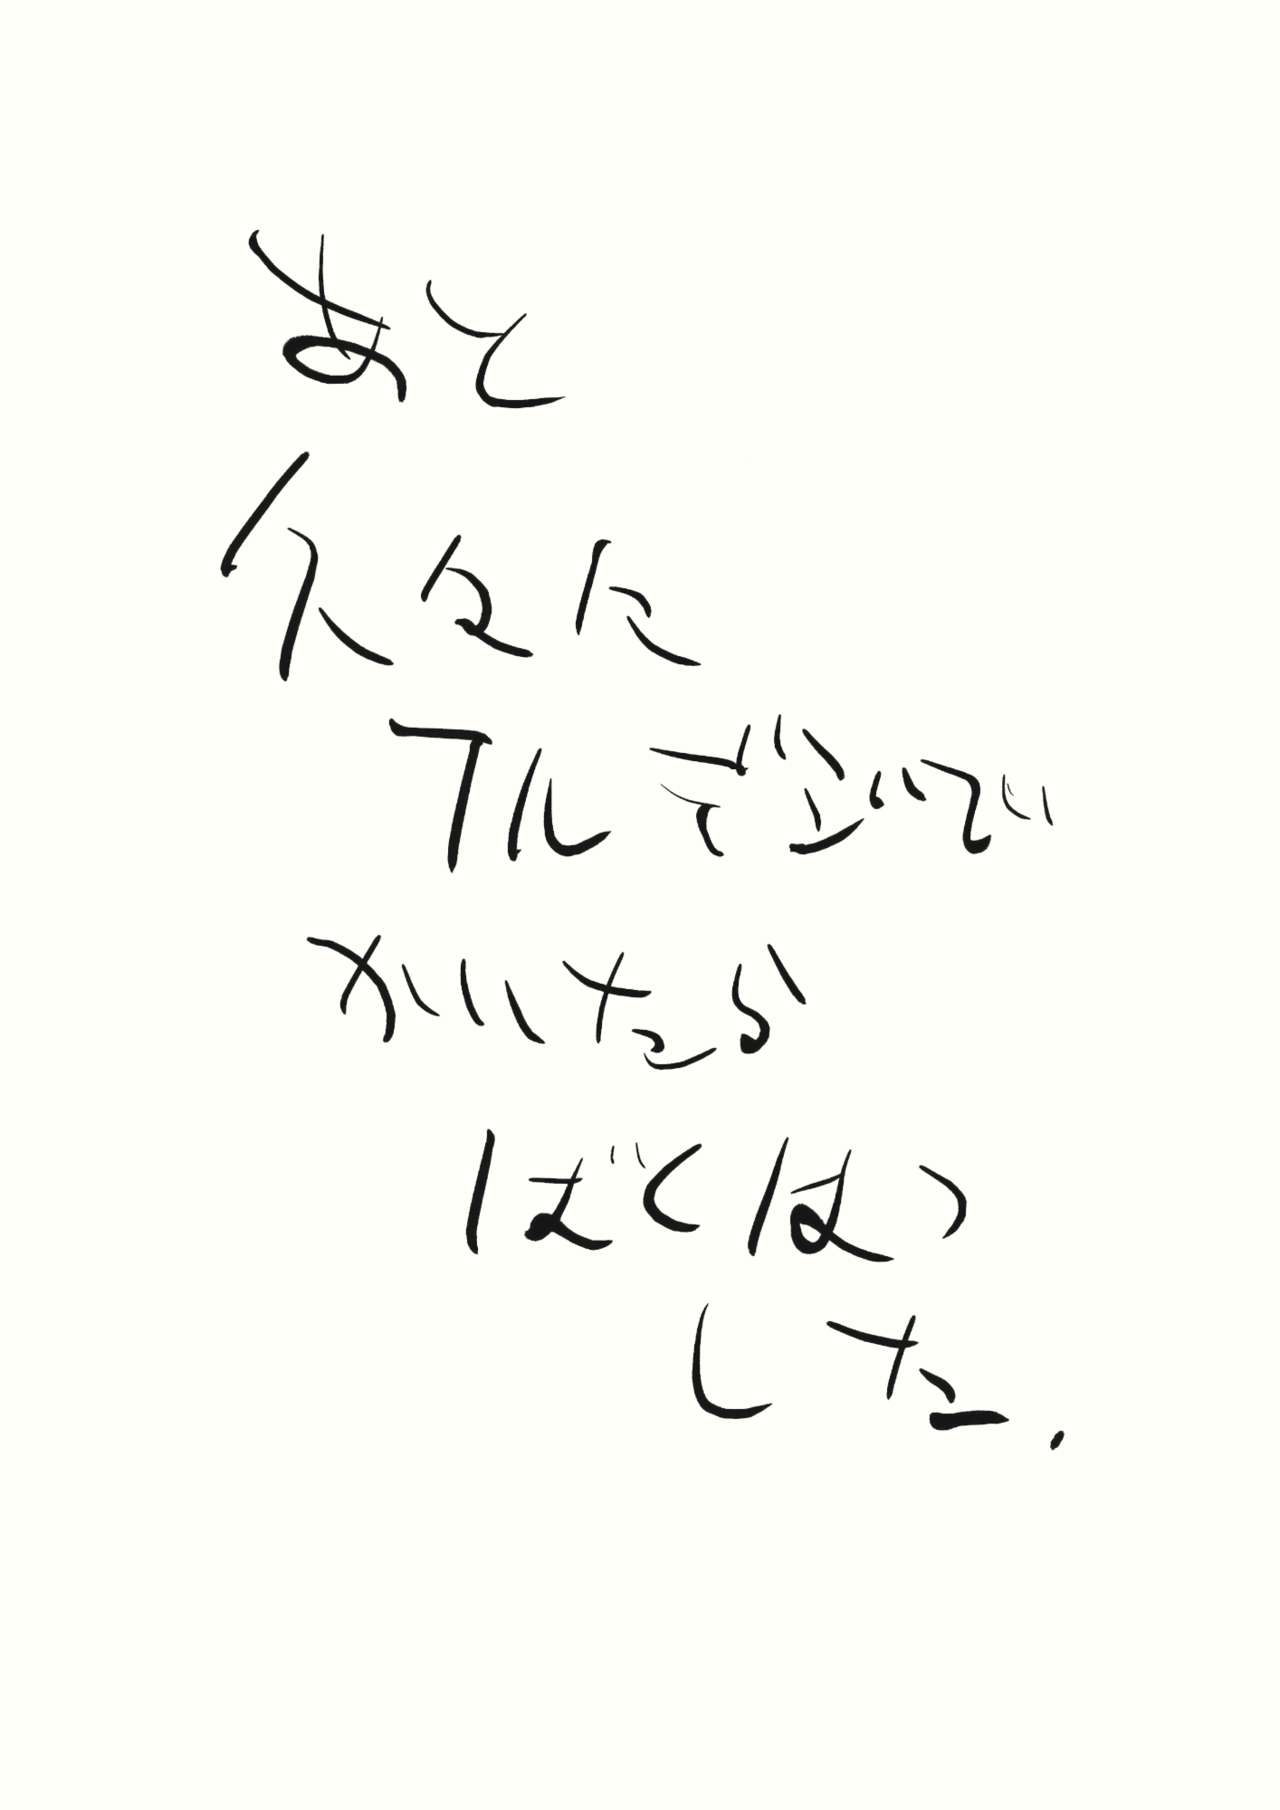 あと
久々に
フルで泣いてい
かいたら
ばくはつ
した.